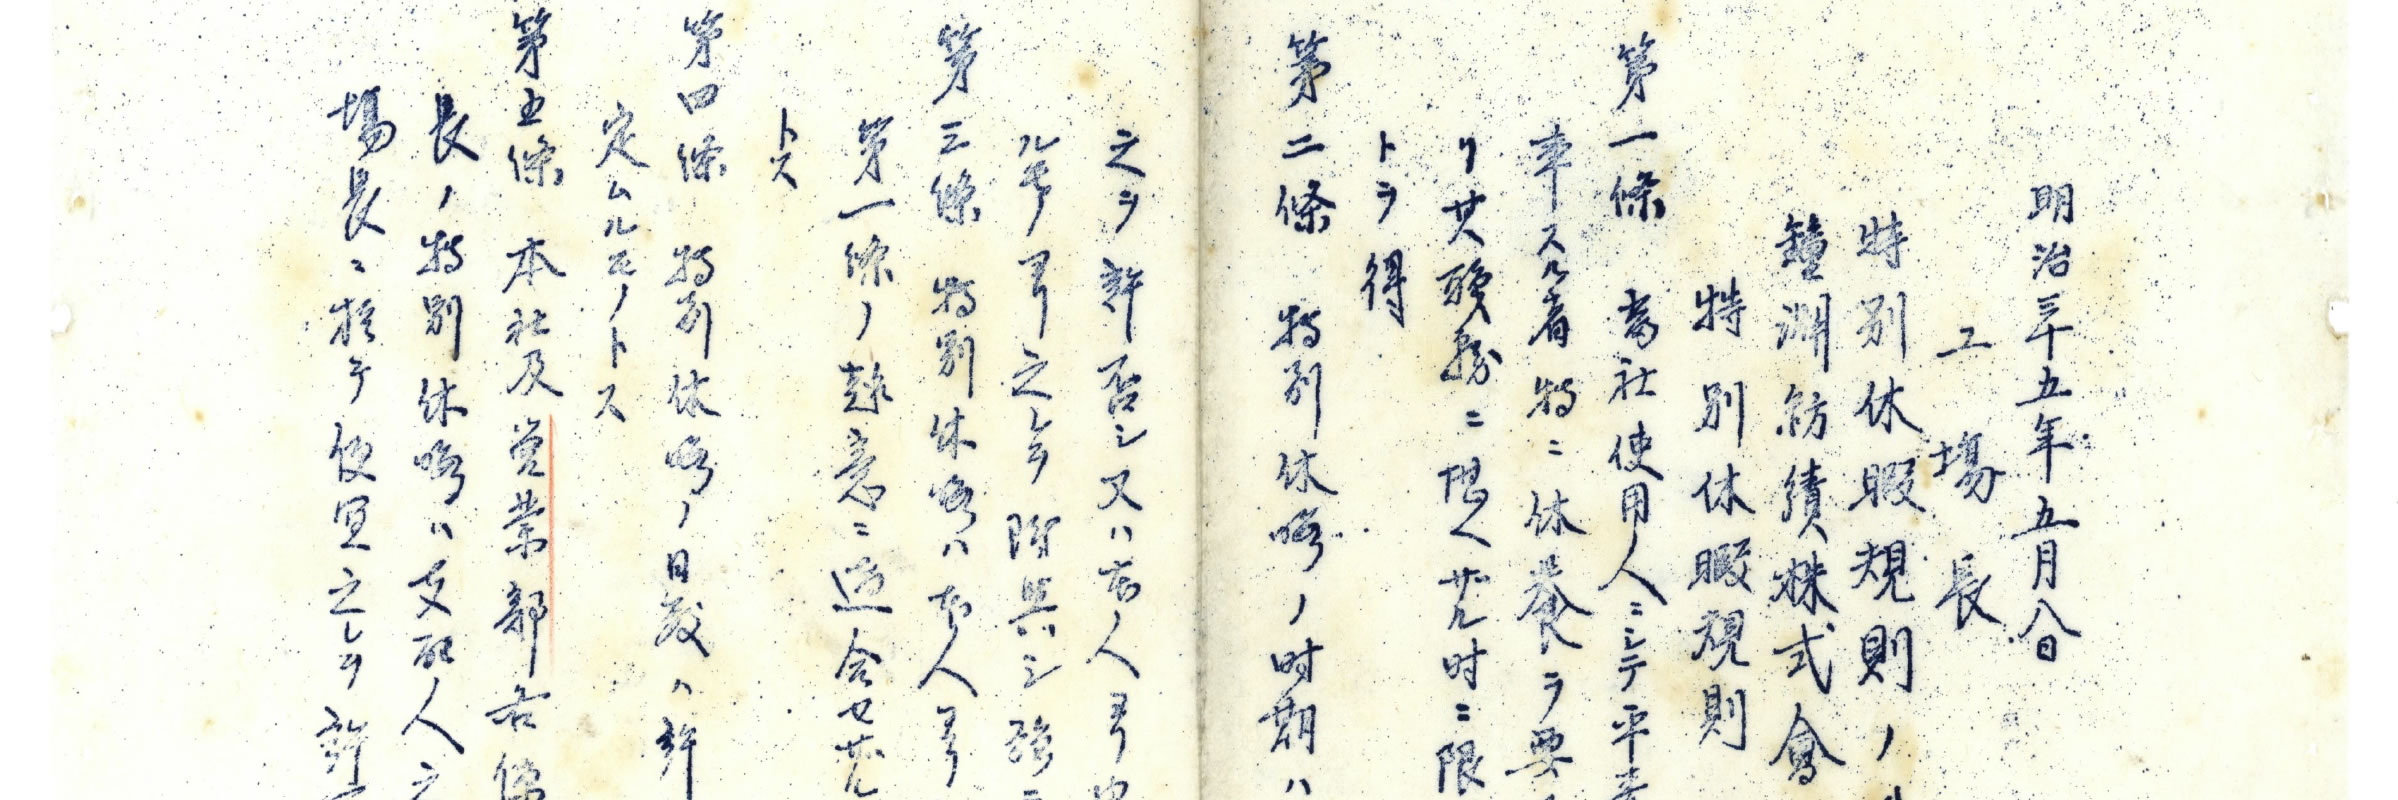 明治三十五年五月八日
工場長
特別休暇規則ノ
鐘淵紡績株式會
特別休暇規則
第一條 當社使用人ニシテ平素
事スル者特ニ休養ヲ要
リ其職務ニ堪ヘザル時ニ限
トヲ得
第二條 特別休暇ノ時期ハ
之ヲ許否シ又ハ本人ヨリ
ル等ヨリ之レヲ附與シ強
第三條 特別休暇ハ本人ヨリ
第一條ノ趣意ニ適合セザル
トス
第四條 特別休暇ノ日數ハ許
定ムルモノトス
第五條 本社及営業部各係
長ノ特別休暇ハ支配人之
場長ニ於テ便宜之レヲ許